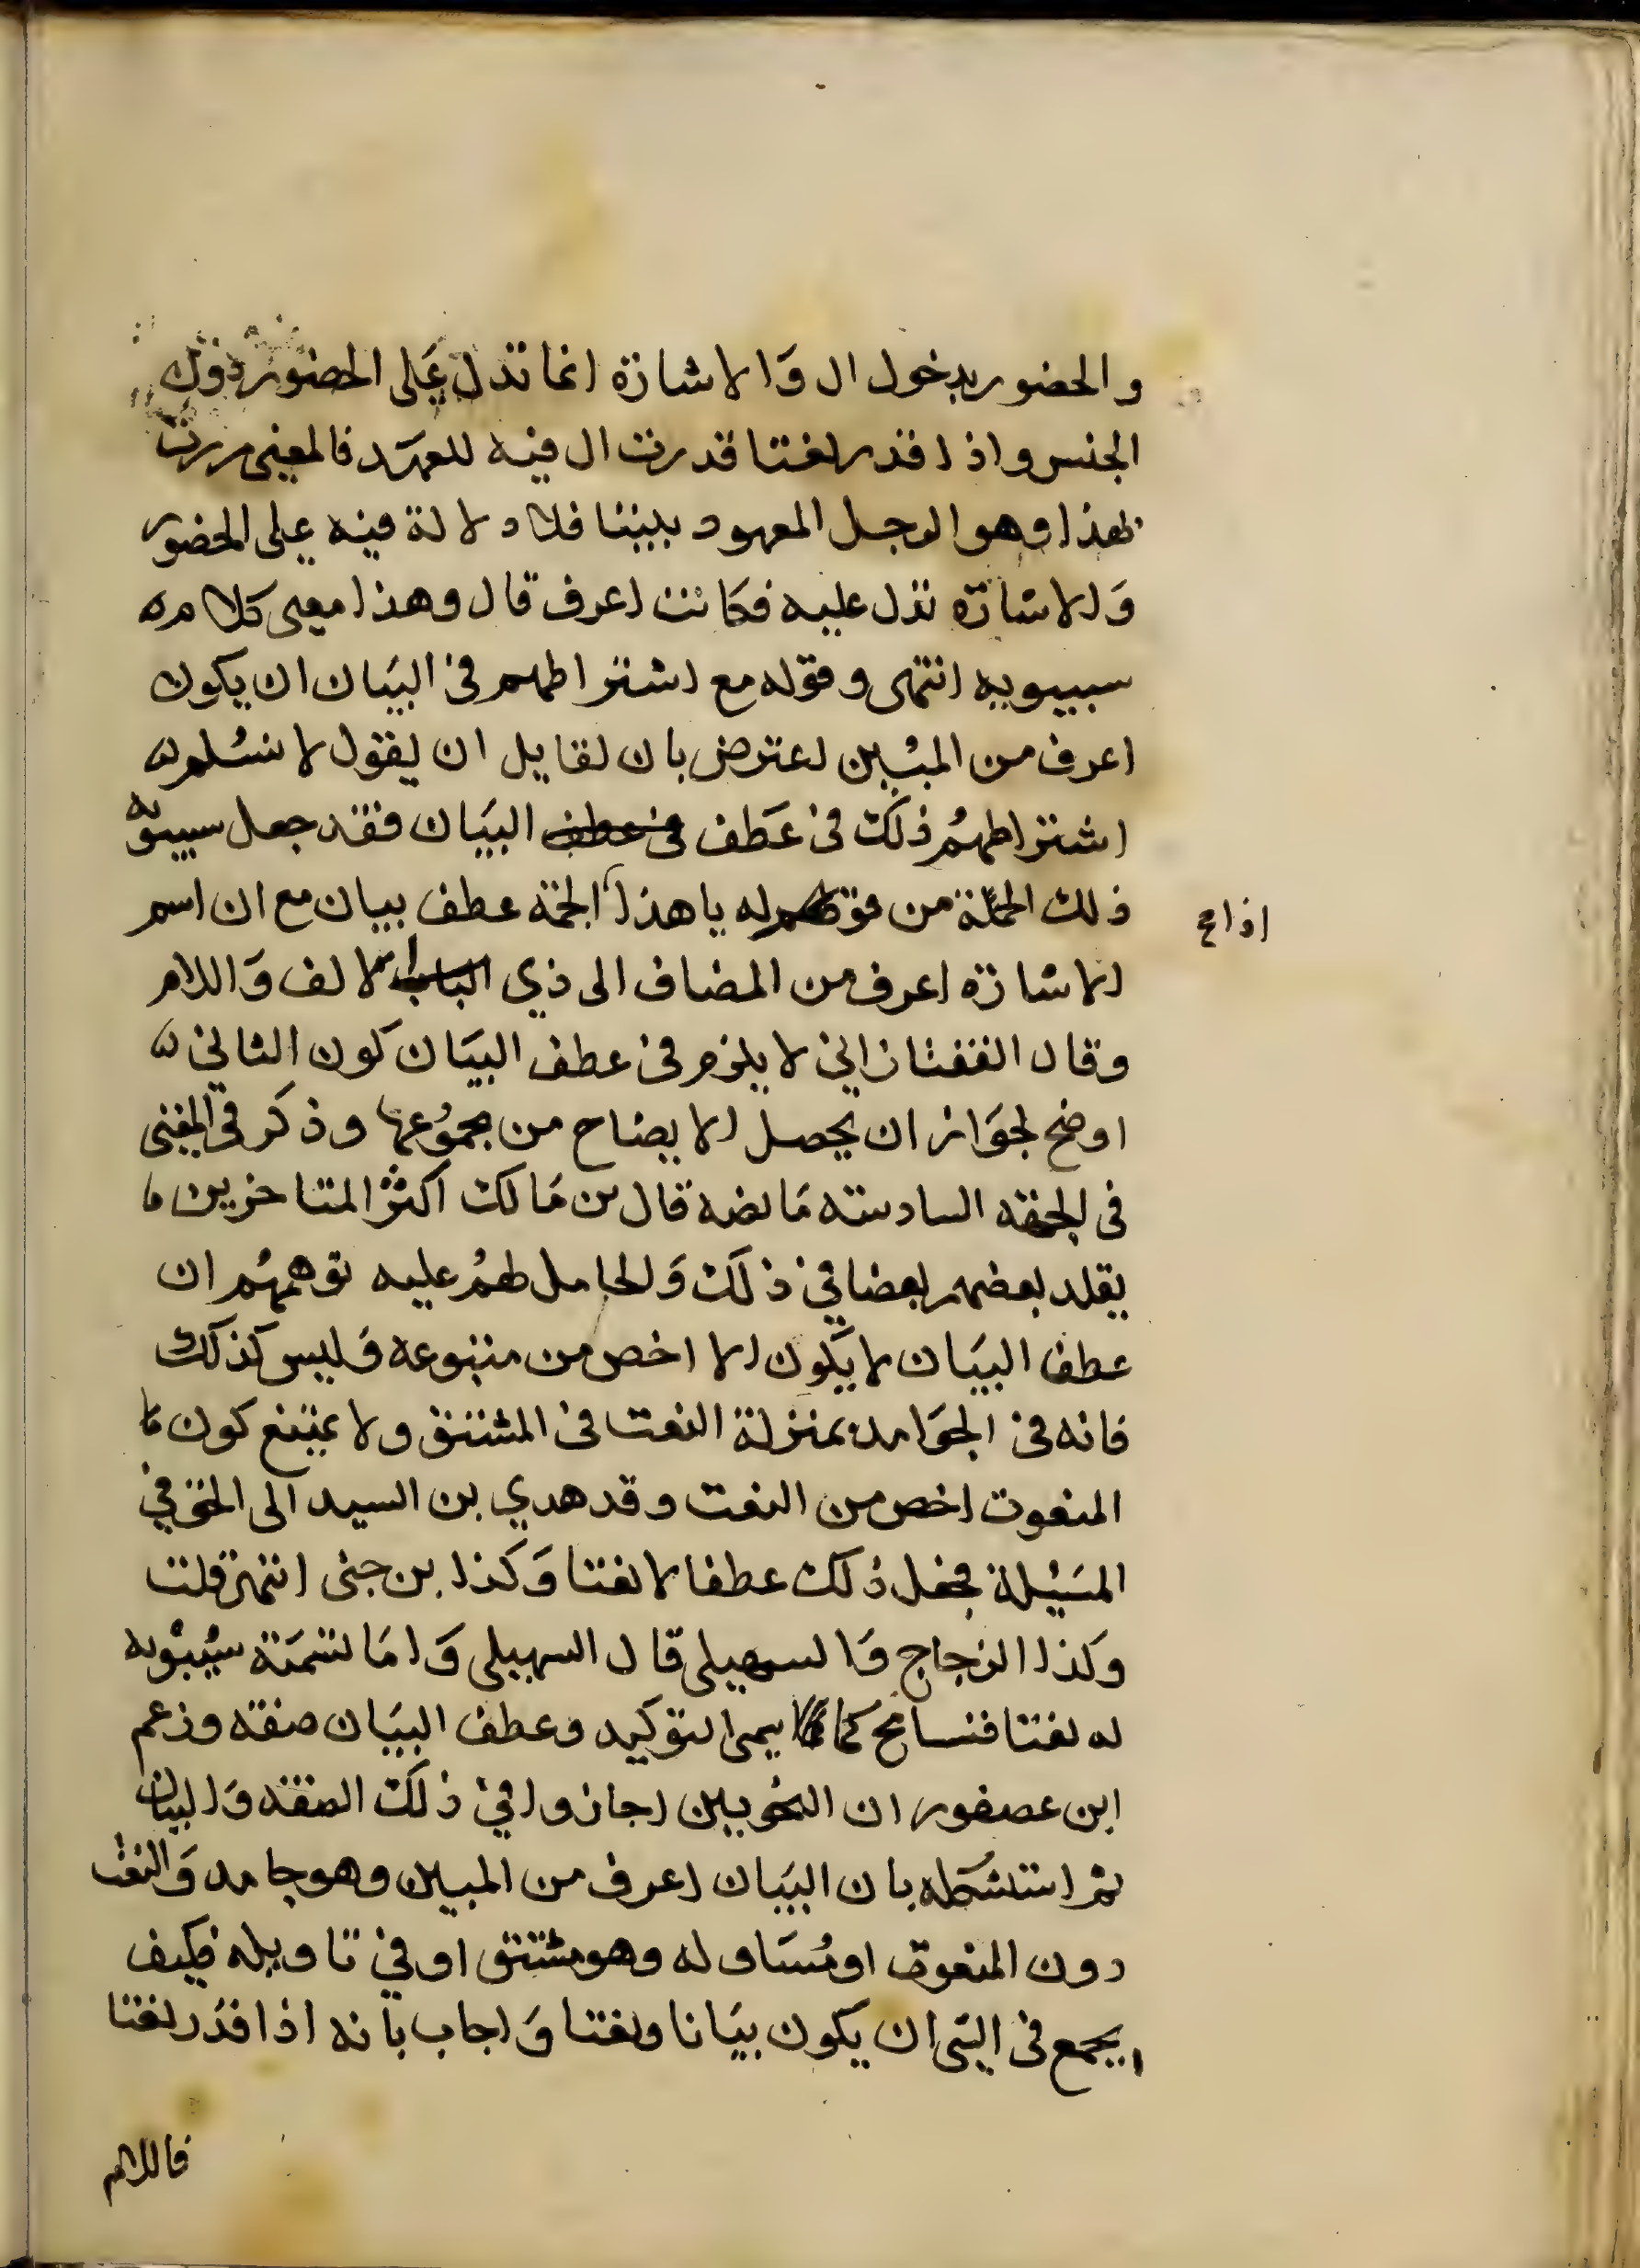 والحضور بدخول ال والاشارة انما تدل على الحضور دون
الجنس واذا قدر نعتا قدرت ال فيه للعهد فالمعنى مررت
بهذا وهو الرجل المعهود بيننا فلا دلالة فيه على الحضور
والاشارة تدل عليه فكانت اعرف قال وهذا معنى كلامه
سيبويه انتهى وقوله مع اشتراطهم في البيان ان يكون
اعرف من المبين اعترض بان لقايل ان يقول لا نسلم
اشتراطهم ذلك في عطف في عطف البيان فقد جعل سيبويه
ذلك الجمة من قوله يا هذا الجمة عطف بيان مع ان اسم
الاشارة اعرف من المضاف الى ذي الالف واللام
وقال التفتازاني لا يلزم في عطف البيان كون الثاني
اوضح لجواز ان يحصل الايضاح من مجموعهما وذكر في المغنى
في الجهة السادسة ما نصه قال بن مالك اكثر المتاخرين
يقلد بعضهم بعضا في ذلك والحامل لهم عليه توهمهم ان
عطف البيان لا يكون الا اخص من متبوعه وليس كذلك
فانه في الجوامد بمنزلة النعت في المشتق ولا يمتنع كون
المنعوت اخص من النعت وقد هدي بن السيد الى الحق في
المسيلة فجعل ذلك عطفا لا نعتا وكذا بن جنى انتهى قلت
وكذا الزجاج والسهيلى قال السهيلى واما تسمية سيبويه
له نعتا فتسامح كما يسمى التوكيد وعطف البيان صفة وزعم
ابن عصفور ان النحويين اجازوا في ذلك الصفة والبيان
ثم استشكله بان البيان اعرف من المبين وهو جامد والنعت
دون المنعوت او مساو له وهو مشتق او في تاويله فكيف
يجمع في الشى ان يكون بيانا ونعتا واجاب بانه اذا قدر نعتا
فاللام